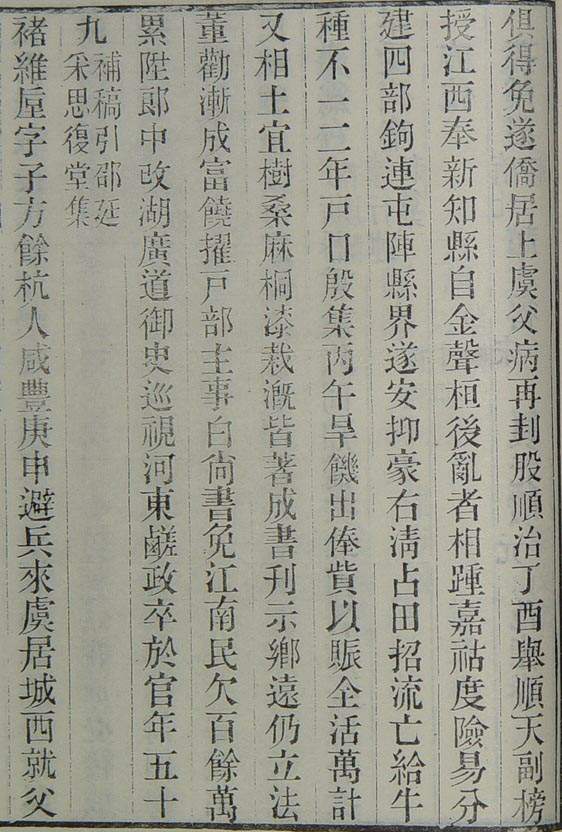 俱得免遂僑居上虞父病再刲股順治丁酉舉順天副榜
授江西奉新知縣自金聲桓後亂者相踵嘉祜度險易分
建四部鉤連屯陣縣界遂安抑豪右淸占田招流亡給牛
種不一二年戸口殷集丙午旱饑出俸貲以賑全活萬計
又相土宜樹桑麻桐漆栽漑皆著成書刊示鄕遠仍立法
董勸漸成富饒擢戸部主事白尙書免江南民欠百餘萬
累陞郞中改湖廣道御史巡視河東鹺政卒於官年五十
九補稿引邵廷
采思復堂集
褚維垕字子方餘杭人咸豐庚申避兵來虞居城西就父